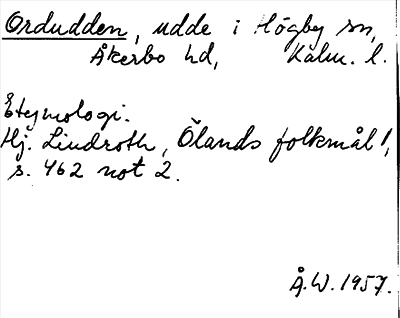 Ordudden, udde i Högby sn,
Åkerbo hd, Kalm. l.
Etymologi.
Hj. Lindroth, Ölands folkmål 1,
s. 462 not 2.
Å.W. 1957.